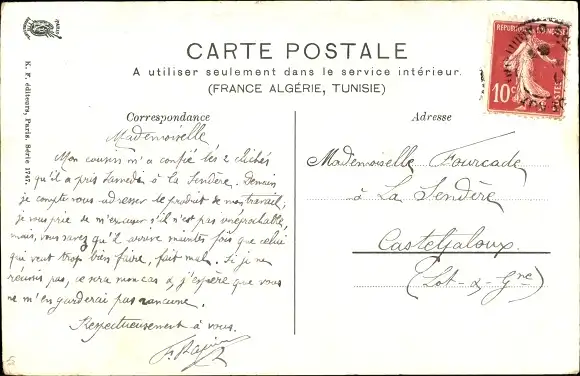 CARTE POSTALE
A utiliser seulement dans le service intérieur.
(FRANCE ALGÉRIE, TUNISIE)
K. F. éditeurs, Paris. Série 1747.
RÉPUBLIQUE
10c
POSTES
Correspondance
Mademoiselle
Mon cousin m'a confié les 2 clichés
qu'il a pris Samedi à la Sendère. Demain
je compte vous adresser le produit de mon travail;
je vous prie de m'excuser s'il n'est pas irréprochable,
mais, vous savez qu'il arrive maintes fois que celui
qui veut trop bien faire, fait mal. Si je ne
réussis pas, ce sera mon cas & j'espère que vous
ne m'en garderai pas rancune.
Respectueusement à vous.
Adresse
Mademoiselle Fourcade
à La Sendère
Casteljaloux
(Lot-&-Gne)